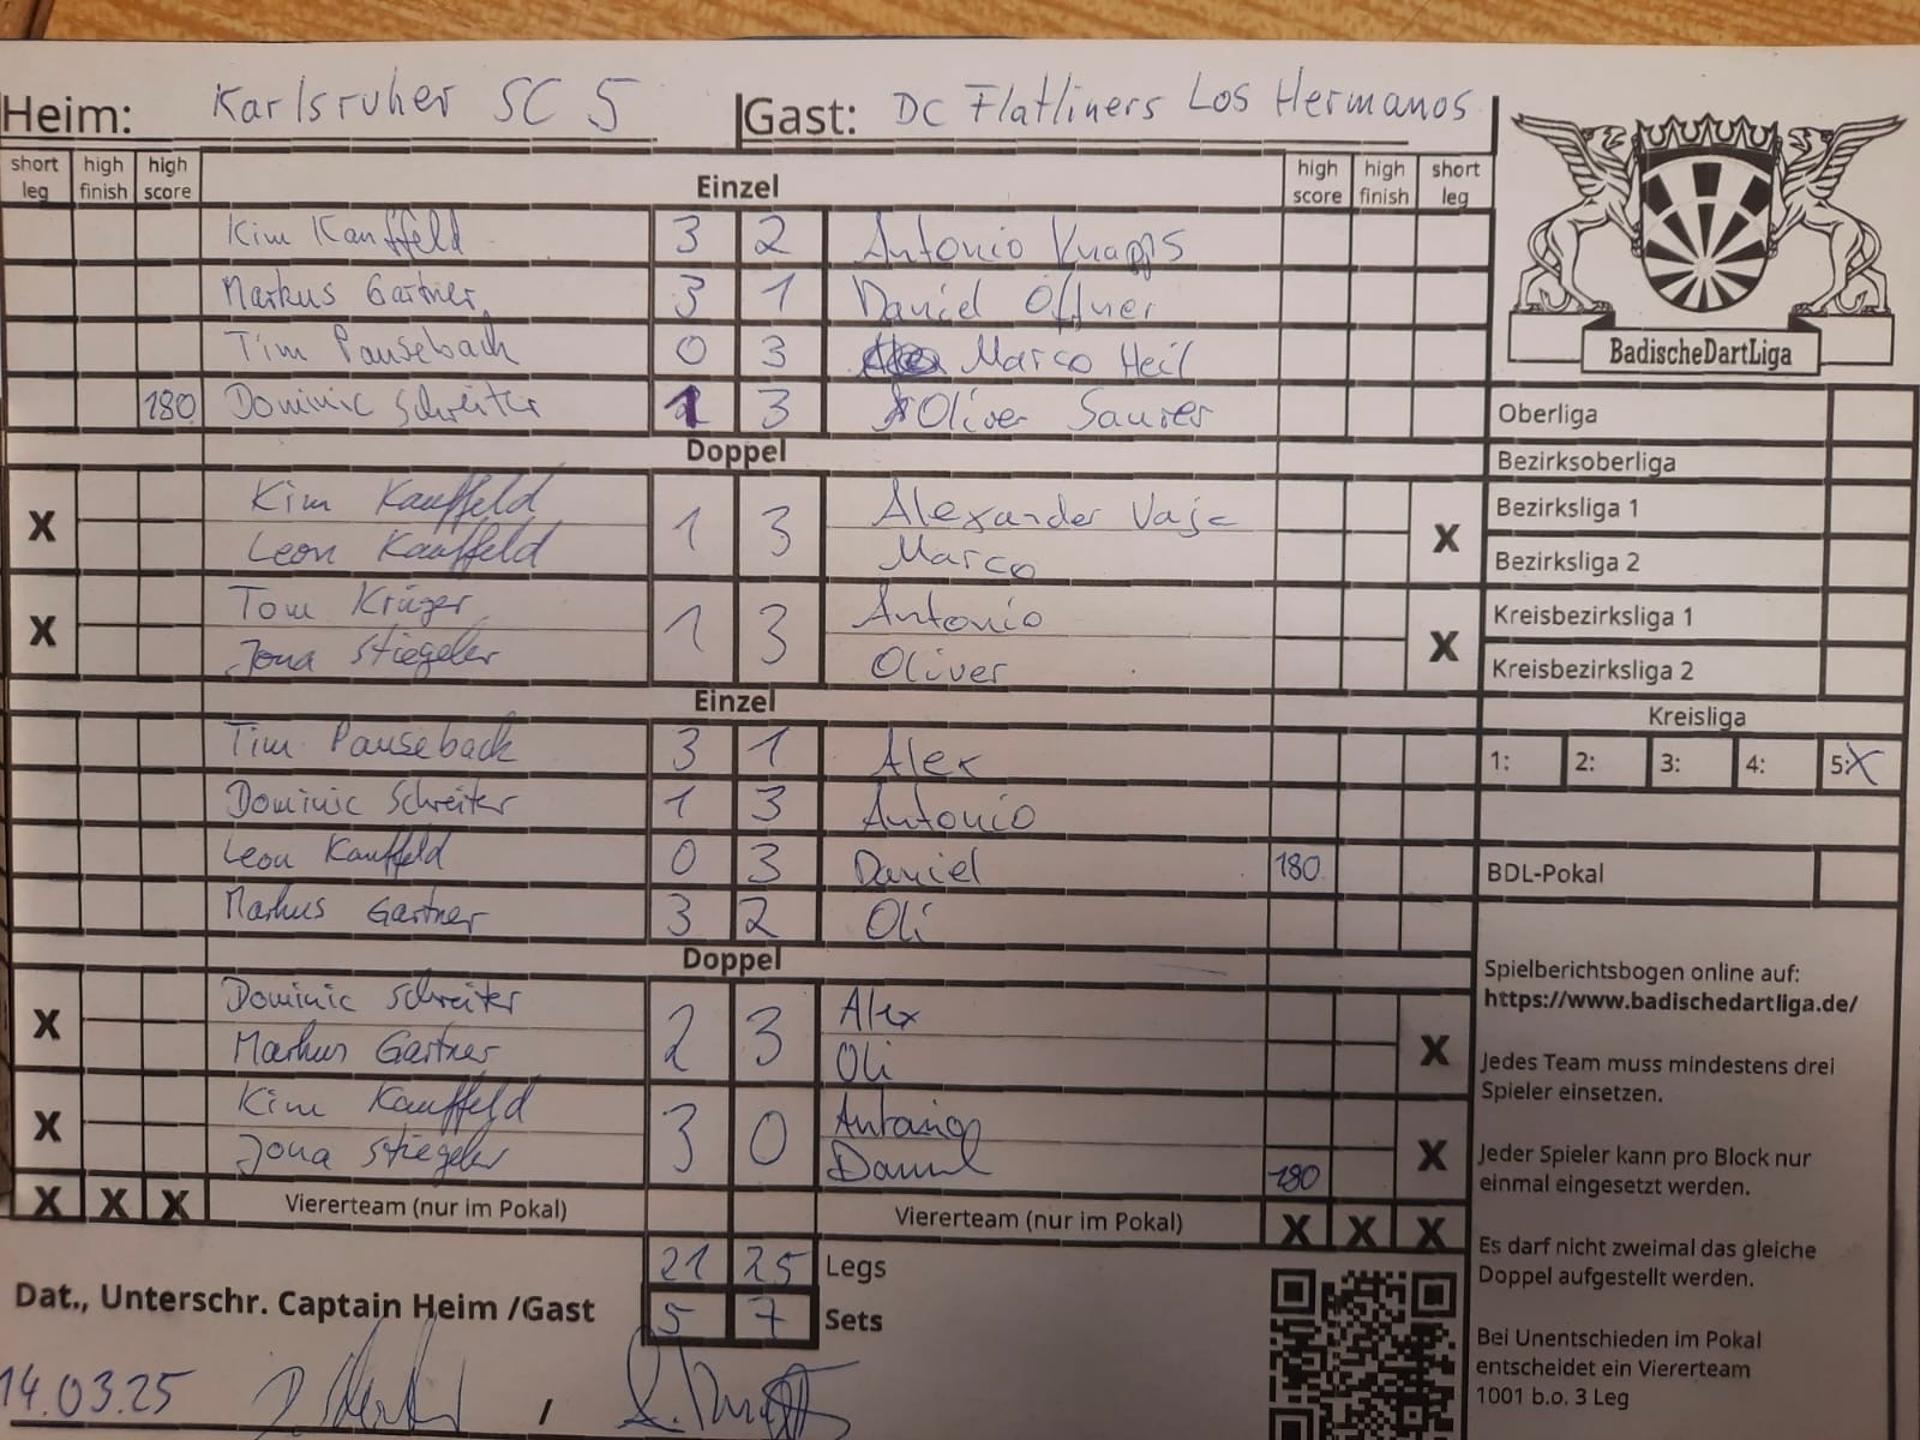 Heim: Karlsruher SC 5 Gast: DC Flatliners Los Hermanos
short leg high finish high score Einzel high score high finish short leg
Kim Kauffeld 3 2 Antonio Knapps
Markus Gartner 3 1 Daniel Offner
Tim Pauseback 0 3 Marco Heil
180 Dominic Schreiter 1 3 Oliver Saurer
Doppel
X Kim Kauffeld 1 3 Alexander X
Leon Kauffeld Marco
X Tom Krüger 1 3 Antonio X
Jona Stiegeler Oliver
Einzel
Tim Pauseback 3 1 Alex
Dominic Schreiter 1 3 Antonio
Leon Kauffeld 0 3 Daniel 180
Markus Gartner 3 2 Oli
Doppel
X Dominic Schreiter 2 3 Alex X
Markus Gartner Oli
X Kim Kauffeld 3 0 Antonio X
Jona Stiegeler Daniel 180
X X X Viererteam (nur im Pokal) Viererteam (nur im Pokal) X X X
21 25 Legs
Dat., Unterschr. Captain Heim /Gast 5 7 Sets
14.03.25 /
BadischeDartLiga
Oberliga
Bezirksoberliga
Bezirksliga 1
Bezirksliga 2
Kreisbezirksliga 1
Kreisbezirksliga 2
Kreisliga
1: 2: 3: 4: 5: X
BDL-Pokal
Spielberichtsbogen online auf:
https://www.badischedartliga.de/
Jedes Team muss mindestens drei
Spieler einsetzen.
Jeder Spieler kann pro Block nur
einmal eingesetzt werden.
Es darf nicht zweimal das gleiche
Doppel aufgestellt werden.
Bei Unentschieden im Pokal
entscheidet ein Viererteam
1001 b.o. 3 Leg